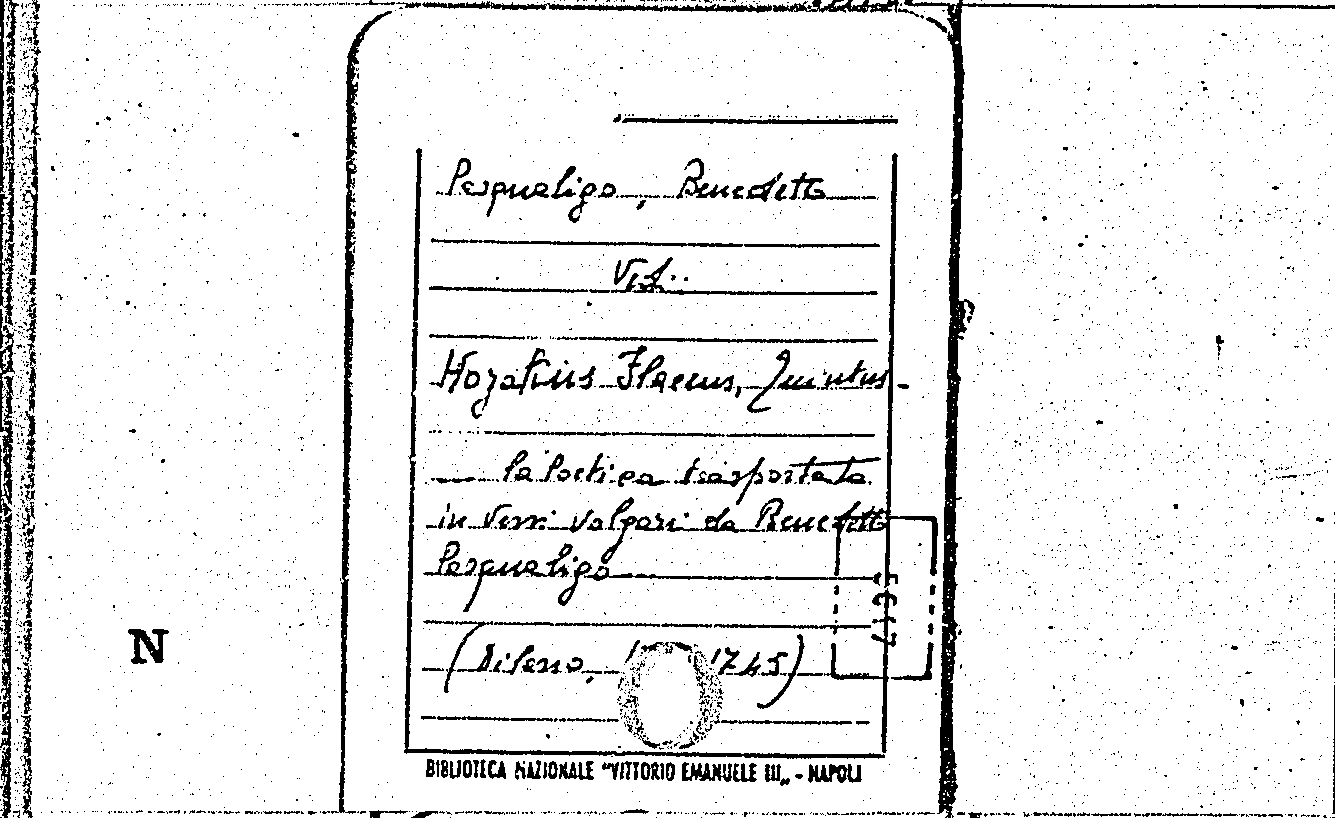 Pasqualigo, Benedetto
Vedi:
Horatius Flaccus, Quintus.
La Poetica trasportata
in versi volgari da Benedetto
Pasqualigo
(Milano, 1745)
N
BIBLIOTECA NAZIONALE "VITTORIO EMANUELE III" - NAPOLI